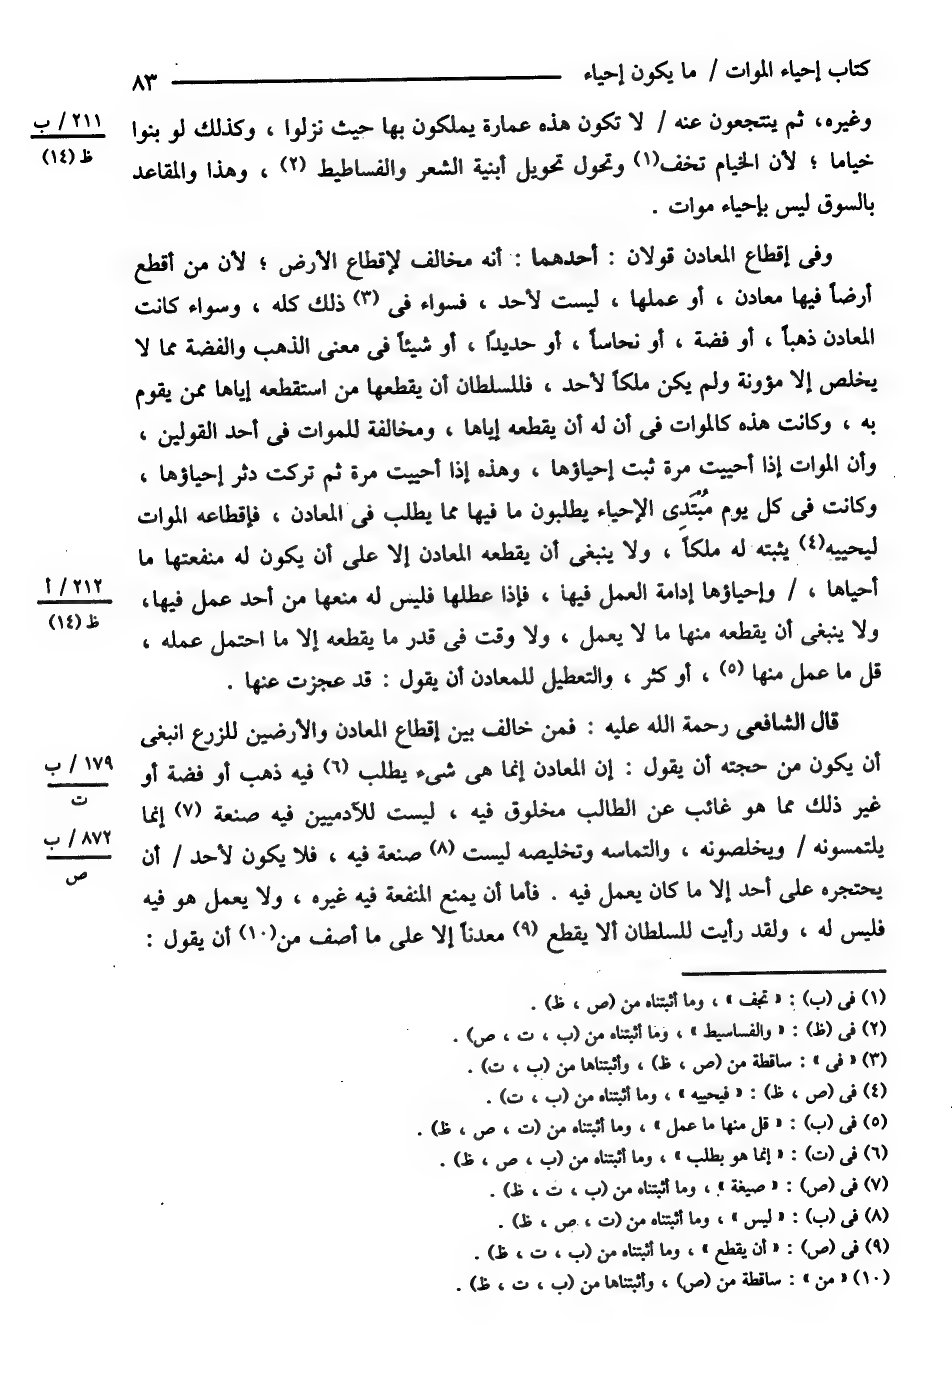 كتاب إحياء الموات / ما يكون إحياء ٨٣
وغيره، ثم ينتجعون عنه / لا تكون هذه عمارة يملكون بها حيث نزلوا ، وكذلك لو بنوا
٢١١ / ب
ظ (١٤)
خياما ؛ لأن الخيام تخف(١) وتحول تحويل أبنية الشعر والفساطيط (٢) ، وهذا والمقاعد
بالسوق ليس بإحياء موات .
وفى إقطاع المعادن قولان : أحدهما : أنه مخالف لإقطاع الأرض ؛ لأن من أقطع
أرضاً فيها معادن ، أو عملها ، ليست لأحد ، فسواء فى (٣) ذلك كله ، وسواء كانت
المعادن ذهباً ، أو فضة ، أو نحاساً ، أو حديدًا ، أو شيئاً فى معنى الذهب والفضة مما لا
يخلص إلا مؤونة ولم يكن ملكاً لأحد ، فللسلطان أن يقطعها من استقطعه إياها ممن يقوم
به ، وكانت هذه كالموات فى أن له أن يقطعه إياها ، ومخالفة للموات فى أحد القولين ،
وأن الموات إذا أحييت مرة ثبت إحياؤها ، وهذه إذا أحييت مرة ثم تركت دثر إحياؤها ،
وكانت فى كل يوم مُبْتَدِى الإحياء يطلبون ما فيها مما يطلب فى المعادن ، فإقطاعه الموات
ليحييه(٤) يثبته له ملكاً ، ولا ينبغى أن يقطعه المعادن إلا على أن يكون له منفعتها ما
أحياها ، / وإحياؤها إدامة العمل فيها ، فإذا عطلها فليس له منعها من أحد عمل فيها،
٢١٢ / أ
ظ (١٤)
ولا ينبغى أن يقطعه منها ما لا يعمل ، ولا وقت فى قدر ما يقطعه إلا ما احتمل عمله ،
قل ما عمل منها (٥) ، أو كثر ، والتعطيل للمعادن أن يقول : قد عجزت عنها .
قال الشافعى رحمة الله عليه : فمن خالف بين إقطاع المعادن والأرضين للزرع انبغى
أن يكون من حجته أن يقول : إن المعادن إنما هى شىء يطلب (٦) فيه ذهب أو فضة أو
١٧٩ / ب
ت
غير ذلك مما هو غائب عن الطالب مخلوق فيه ، ليست للآدميين فيه صنعة (٧) إنما
يلتمسونه / ويخلصونه ، والتماسه وتخليصه ليست (٨) صنعة فيه ، فلا يكون لأحد / أن
٨٧٢ / ب
ص
يحتجره على أحد إلا ما كان يعمل فيه . فأما أن يمنع المنفعة فيه غيره ، ولا يعمل هو فيه
فليس له ، ولقد رأيت للسلطان ألا يقطع (٩) معدناً إلا على ما أصف من(١٠) أن يقول :
(١) فى (ب) : « تجف » ، وما أثبتناه من (ص ، ظ) .
(٢) فى (ظ) : « والفساسيط » ، وما أثبتناه من (ب ، ت ، ص) .
(٣) « فى » : ساقطة من (ص ، ظ) ، وأثبتناها من (ب ، ت) .
(٤) فى (ص ، ظ) : « فيحييه » ، وما أثبتناه من (ب ، ت) .
(٥) فى (ب) : « قل منها ما عمل » ، وما أثبتناه من (ت ، ص ، ظ) .
(٦) فى (ت) : « إنما هو بطلب » ، وما أثبتناه من (ب ، ص ، ظ) .
(٧) فى (ص) : « صيغة » ، وما أثبتناه من (ب ، ت ، ظ) .
(٨) فى (ب) : « ليس » ، وما أثبتناه من (ت ، ص ، ظ) .
(٩) فى (ص) : « أن يقطع » ، وما أثبتناه من (ب ، ت ، ظ) .
(١٠) « من » : ساقطة من (ص) ، وأثبتناها من (ب ، ت ، ظ) .